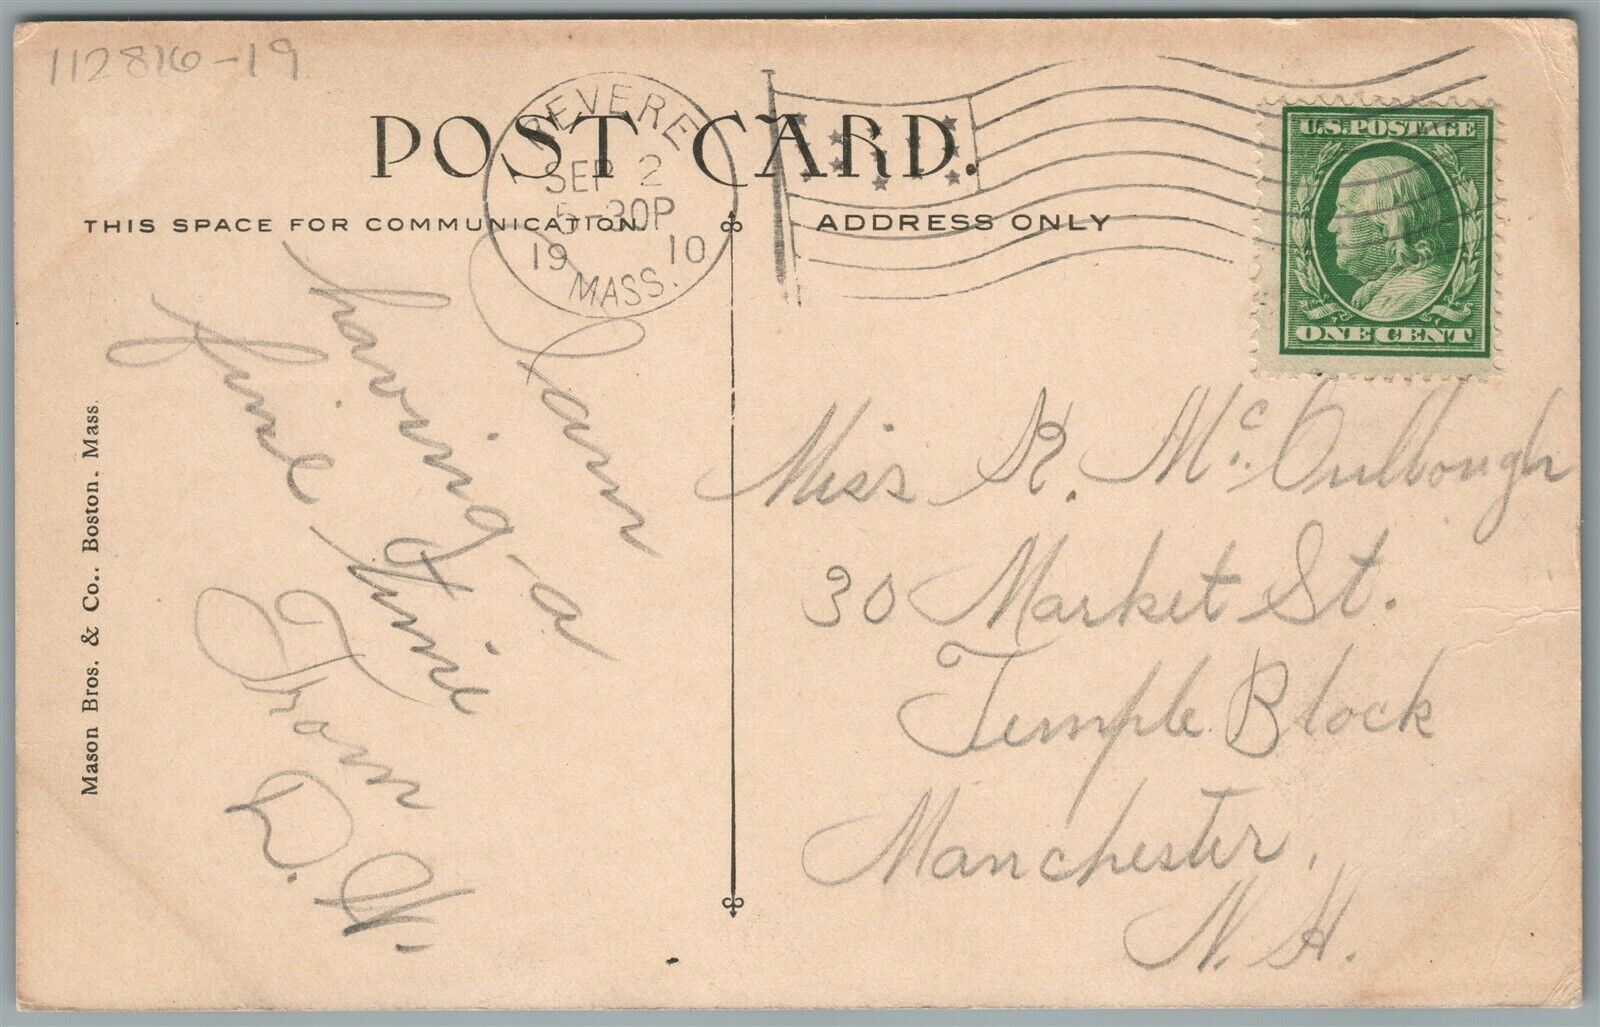 112816-19
POST CARD.
REVERE
SEP 2
5-30P
1910
MASS.
U.S. POSTAGE
ONE CENT
THIS SPACE FOR COMMUNICATION.
ADDRESS ONLY
Mason Bros. & Co., Boston, Mass.
I am
having a
fine time
From
D. W.
Miss K. McCullough
30 Market St.
Temple Block
Manchester,
N. H.